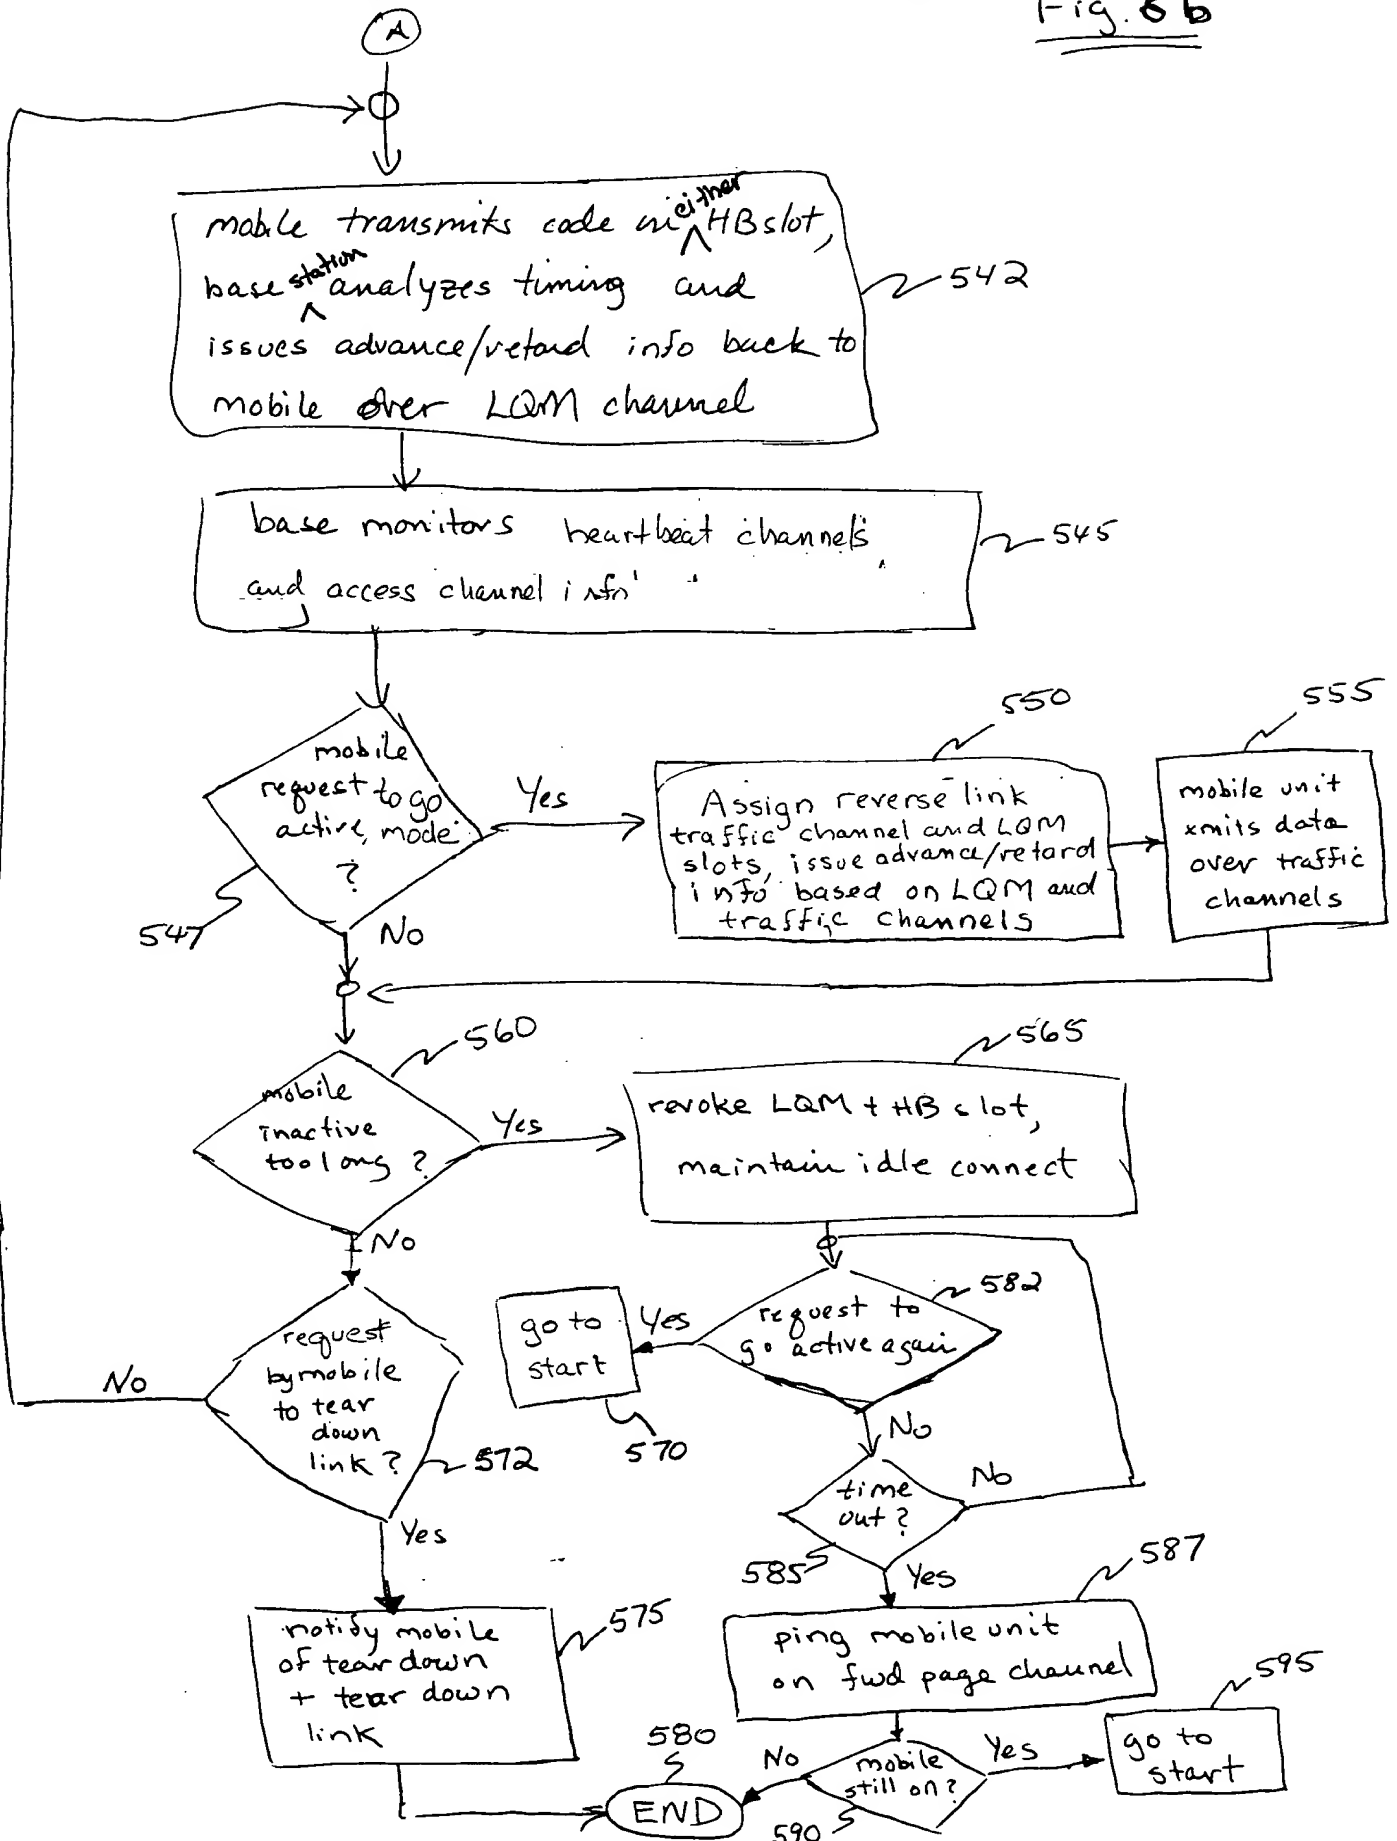 Fig. 6b
A
mobile transmits code in either HB slot,
base station analyzes timing and
issues advance/retard info back to
mobile over LQM channel
542
base monitors heartbeat channels
and access channel info
545
mobile
request to go
active, mode
?
547
Yes
No
550
Assign reverse link
traffic channel and LQM
slots, issue advance/retard
info based on LQM and
traffic channels
555
mobile unit
xmits data
over traffic
channels
560
mobile
inactive
too long ?
Yes
No
565
revoke LQM + HB slot,
maintain idle connect
582
request to
go active again
Yes
No
go to
start
570
request
by mobile
to tear
down
link ?
572
No
Yes
time
out ?
585
No
Yes
587
ping mobile unit
on fwd page channel
notify mobile
of tear down
+ tear down
link
575
580
END
mobile
still on ?
590
No
Yes
595
go to
start